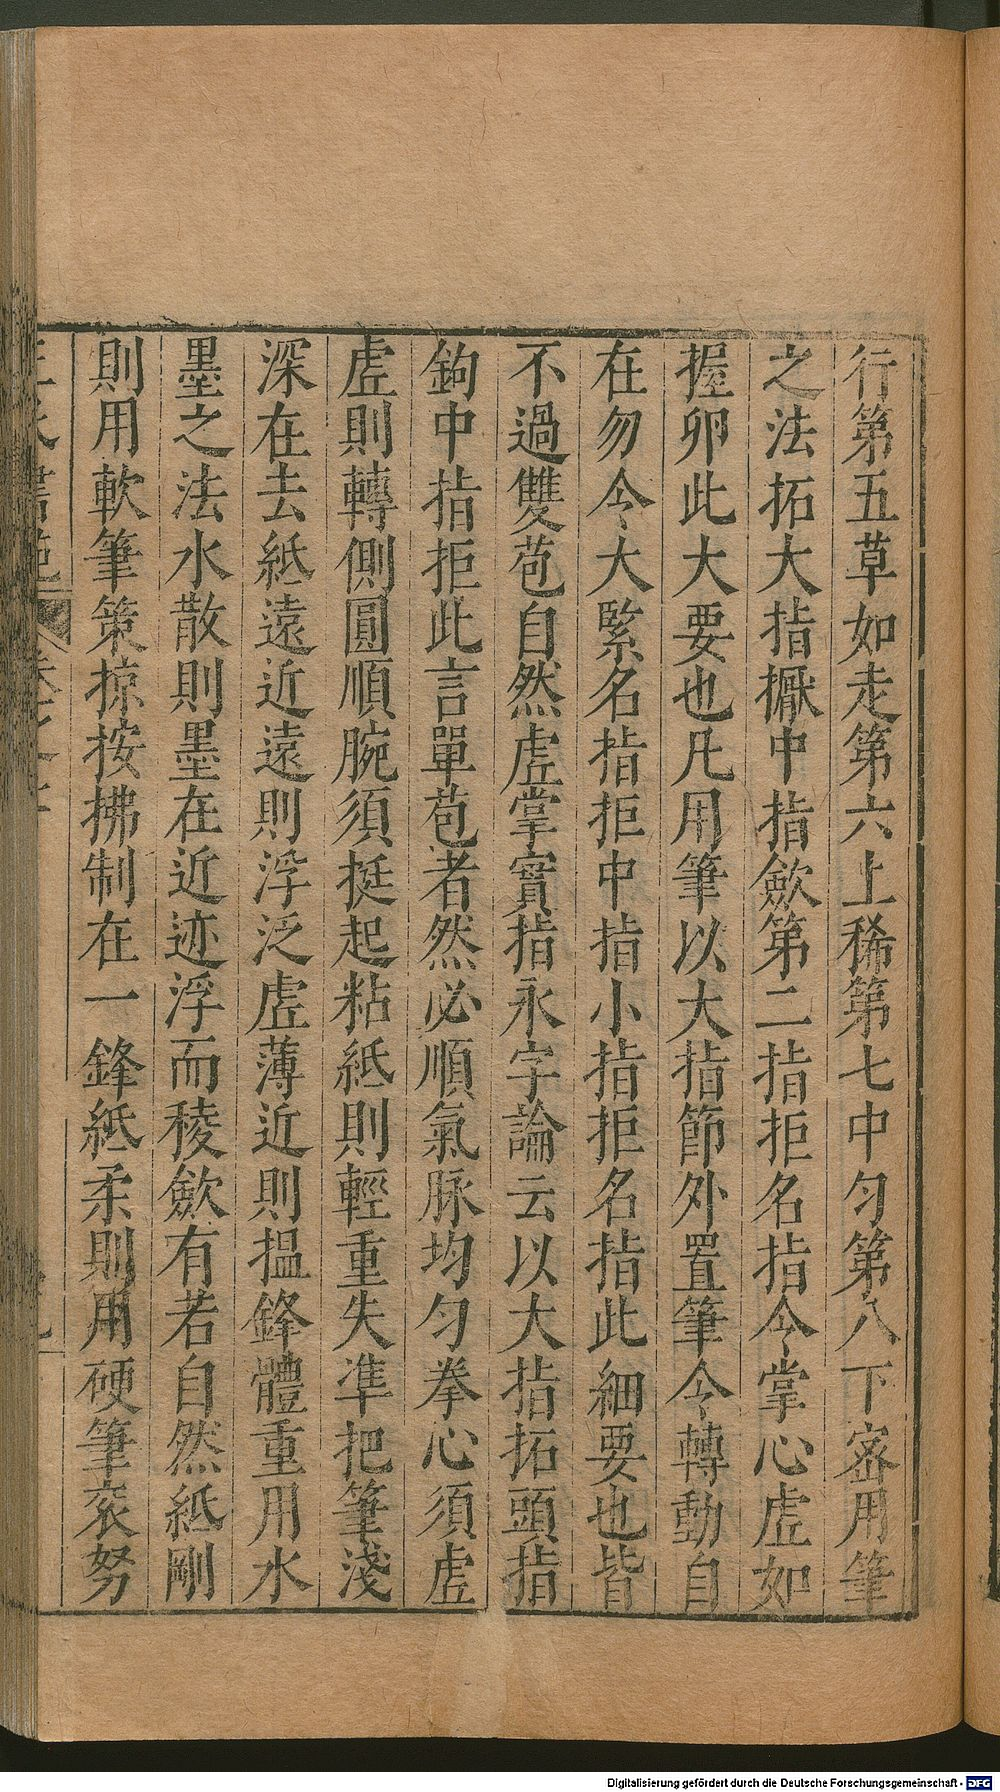 行第五草如走第六上稀第七中匀第八下密用筆
之法拓大指擫中指歛第二指拒名指令掌心虛如
握卵此大要也凡用筆以大指節外置筆令轉動自
在勿令大緊名指拒中指小指拒名指此細要也皆
不過雙苞自然虛掌實指永字論云以大指拓頭指
鉤中指拒此言單苞者然必順氣脉均匀拳心須虛
虛則轉側圓順腕須挺起粘紙則輕重失準把筆淺
深在去紙遠近遠則浮泛虛薄近則揾鋒體重用水
墨之法水散則墨在近迹浮而稜歛有若自然紙剛
則用軟筆策掠按拂制在一鋒紙柔則用硬筆衮努
王氏書苑
Digitalisierung gefördert durch die Deutsche Forschungsgemeinschaft - DFG